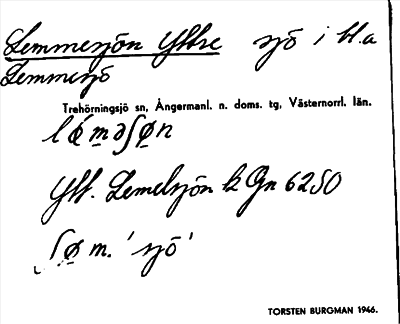 Lemmesjön Yttre sjö i H.a
Lemmesjö
Trehörningsjö sn, Ångermanl. n. doms. tg, Västernorrl. län.
Ytt. Lemelsjön k Gn 6250
ʃø̱ m. 'sjö'
TORSTEN BURGMAN 1946.